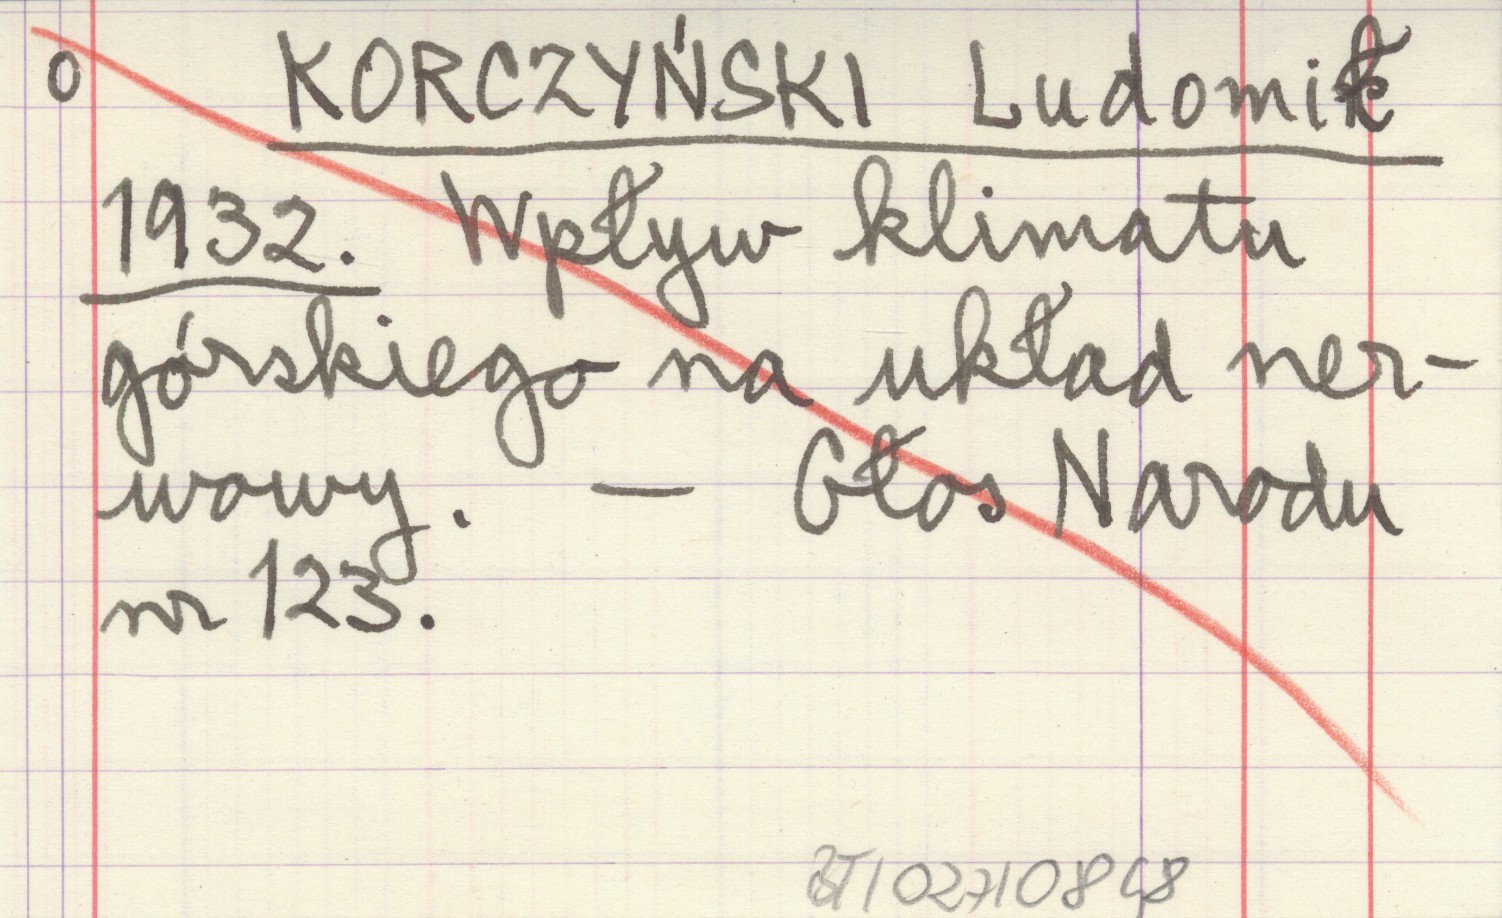 o KORCZYŃSKI Ludomił
1932. Wpływ klimatu
górskiego na układ ner-
wowy. — Głos Narodu
nr 123.